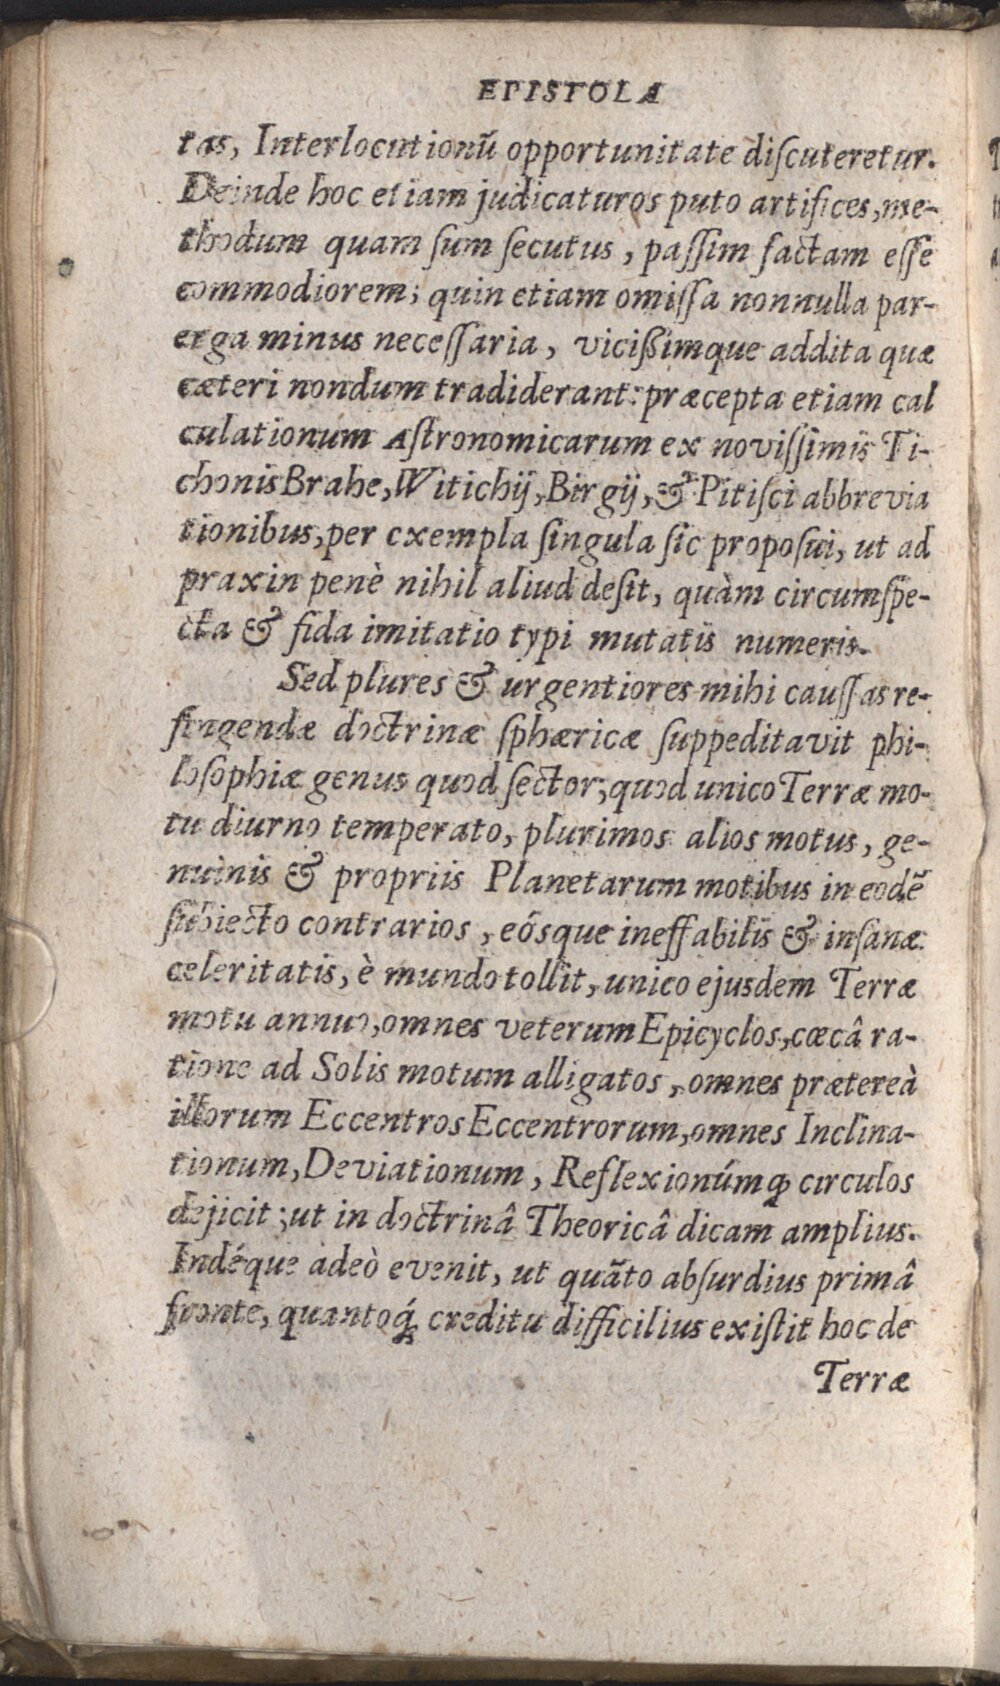 EPISTOLA
tas, Interlocutionũ opportunitate diſcuteretur.
Deinde hoc etiam judicaturos puto artifices, me-
thodum quam ſum ſecutus, paſſim factam eſſe
commodiorem; quin etiam omiſſa nonnulla par-
erga minus neceſſaria, vicißimque addita quæ
cæteri nondum tradiderant: præcepta etiam cal
culationum Aſtronomicarum ex noviſſimis Ti-
chonis Brahe, Witichij, Birgij, & Pitiſci abbrevia
tionibus, per exempla ſingula ſic propoſui, ut ad
praxin penè nihil aliud deſit, quàm circumſpe-
cta & fida imitatio typi mutatis numeris.
Sed plures & urgentiores mihi cauſſas re-
fingendæ doctrinæ ſphæricæ ſuppeditavit phi-
loſophiæ genus quod ſector; quod unico Terræ mo-
tu diurno temperato, plurimos alios motus, ge-
nuinis & propriis Planetarum motibus in eodẽ
ſubiecto contrarios, eósque ineffabilis & inſanæ
celeritatis, è mundo tollit, unico ejusdem Terræ
motu annuo, omnes veterum Epicyclos, cœcâ ra-
tione ad Solis motum alligatos, omnes prætereà
illorum Eccentros Eccentrorum, omnes Inclina-
tionum, Deviationum, Reflexionúmqꝫ circulos
dejicit; ut in doctrinâ Theoricâ dicam amplius.
Indéque adeò evenit, ut quãto abſurdius primâ
fronte, quantoqꝫ́ creditu difficilius exiſtit hoc de
Terræ